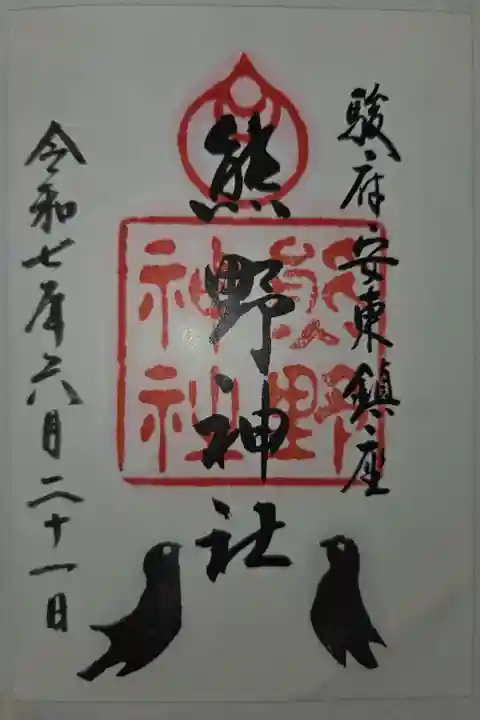 駿府安東鎮座
熊野神社
令和七年六月二十一日
熊野
神社